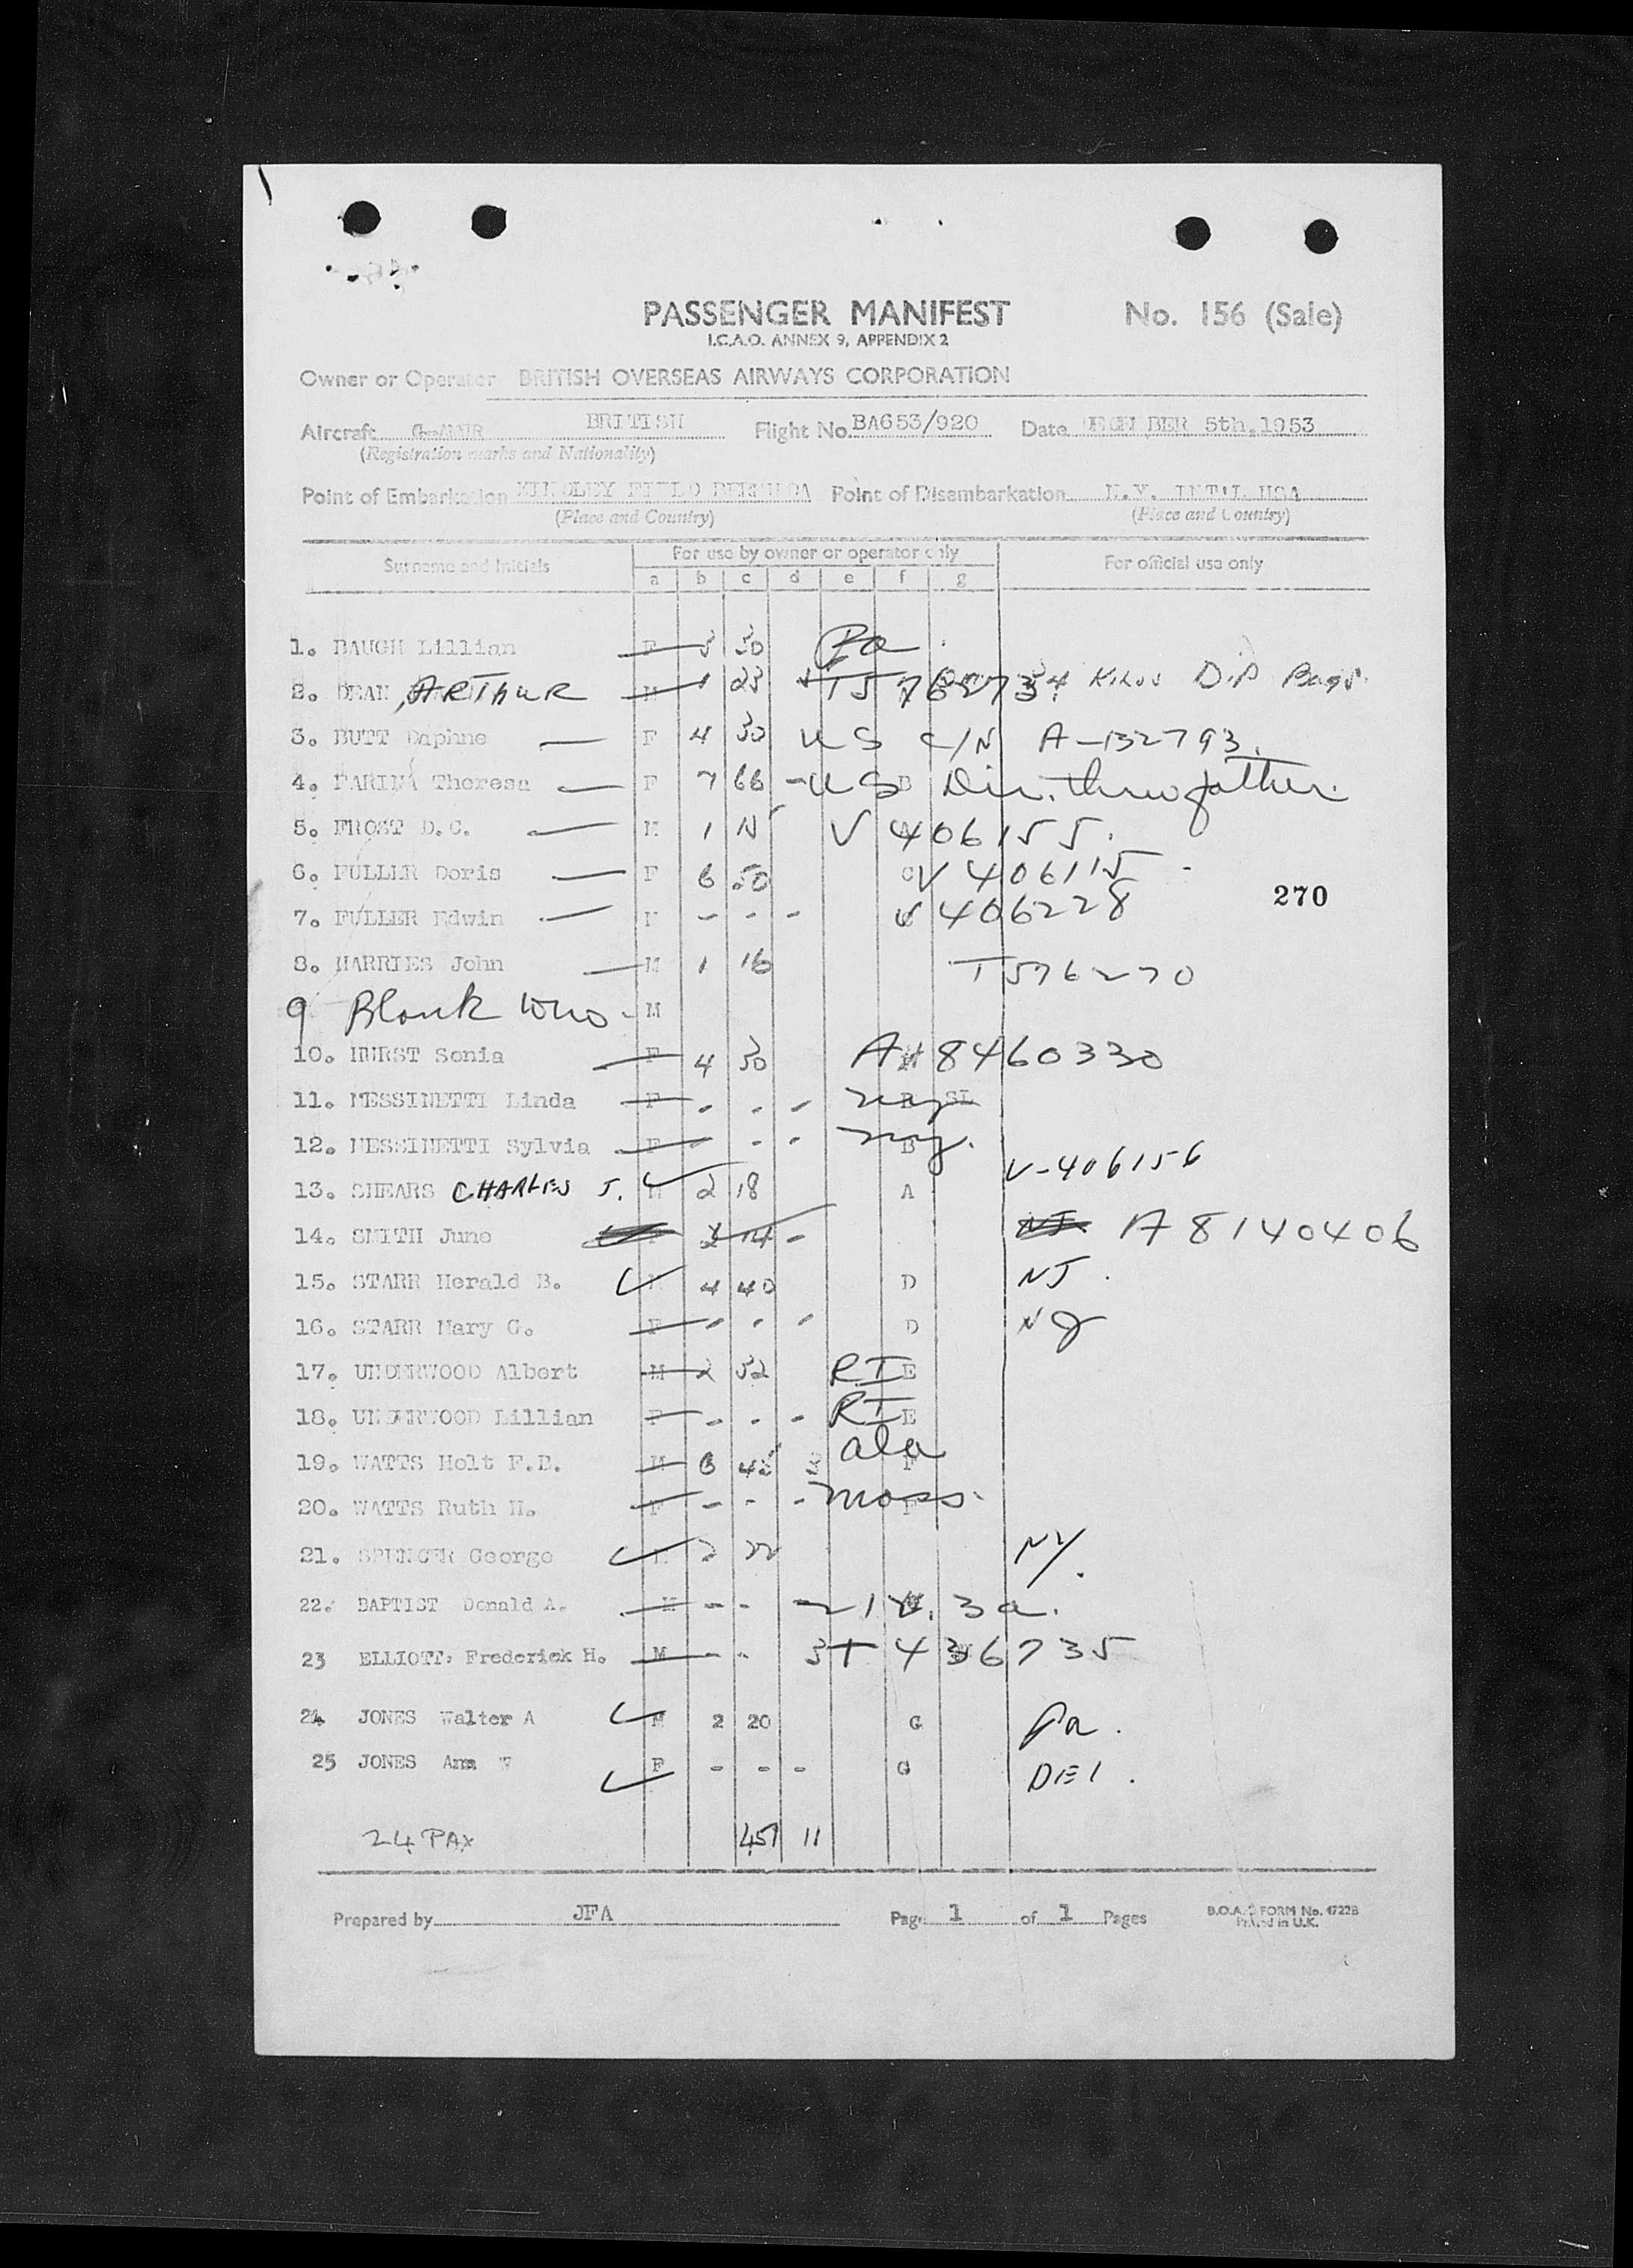 PASSENGER MANIFEST No. 156 (Sale)
I.C.A.O. ANNEX 9, APPENDIX 2
Owner or Operator BRITISH OVERSEAS AIRWAYS CORPORATION
Aircraft BRITISH Flight No. BA653/920 Date BER 5th.1953
(Registration marks and Nationality)
Point of Embarkation KINDLEY FIELD BERMUDA Point of Disembarkation N.Y. INT'L USA
(Place and Country) (Place and Country)
Surname and Initials For use by owner or operator only For official use only
a b c d e f g
1. BAUGH Lillian F 3 30 Pa
2. DEAN, ARTHUR M 1 23 Kilos Dip Bags
3. BUTT Daphne F 4 30 US C/N A-132793.
4. FARINA Theresa F 7 66 - US B Div. thru father.
5. FROST D.C. M 1 15 V 406155.
6. FULLER Doris F 6 50 C V 406115 -
7. FULLER Edwin M - - - V 406228
270
8. HARRIES John M 1 16 T576270
9 Blank Who - M
10. HURST Sonia F 4 30 A 8460330
11. MESSINETTI Linda F - - - ny B SL
12. MESSINETTI Sylvia F - - - ny. B
13. SHEARS CHARLES J. M 2 18 A V-406156
14. SMITH June F - NJ A 8140406
15. STARR Herald B. M 4 40 D NJ.
16. STARR Mary G. F - - - D NJ
17. UNDERWOOD Albert M 2 32 RI E
18. UNDERWOOD Lillian F - - - RI E
19. WATTS Holt F.B. M 6 45 3 ala F
20. WATTS Ruth H. F - - - mass. F
21. SPENCER George M 2 22 NY.
22. BAPTIST Donald A. M - - 3a.
23 ELLIOTT: Frederick H. M - - T 436735
24 JONES Walter A M 2 20 G Pa.
25 JONES Ann F - - - G DEl.
24 PAX 457 11
Prepared by JFA Page 1 of 1 Pages B.O.A.C FORM No. 4722B
Printed in U.K.